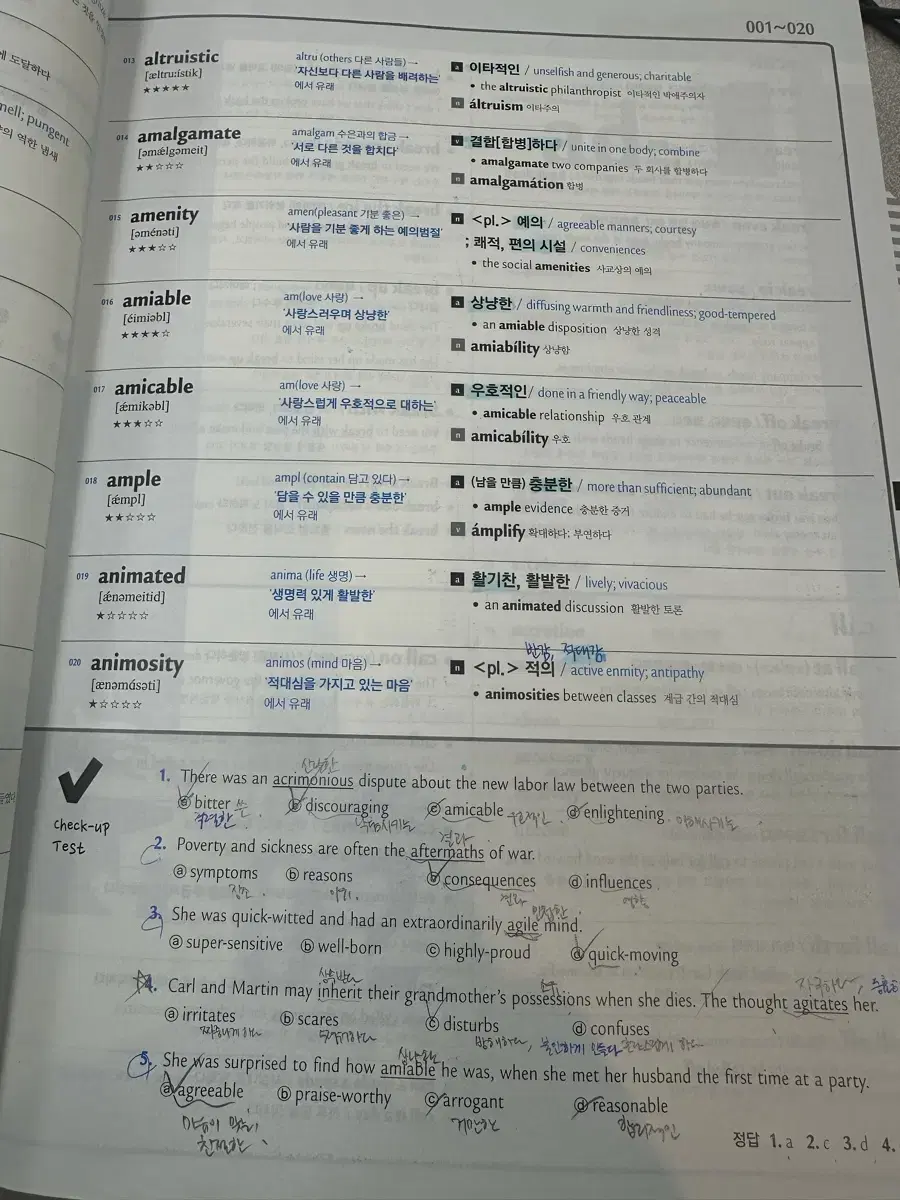 001~020
에 도달하다
mell; pungent
의 역한 냄새
013 altruistic
[æltru:ístik]
★★★★★
altru (others 다른 사람들) →
'자신보다 다른 사람을 배려하는'
에서 유래
a 이타적인 / unselfish and generous; charitable
• the altruistic philanthropist 이타적인 박애주의자
n áltruism 이타주의
014 amalgamate
[əmǽlgəmeit]
★★☆☆☆
amalgam 수은과의 합금 →
'서로 다른 것을 합치다'
에서 유래
v 결합[합병]하다 / unite in one body; combine
• amalgamate two companies 두 회사를 합병하다
n amalgamátion 합병
015 amenity
[əménəti]
★★★☆☆
amen(pleasant 기분 좋은) →
'사람을 기분 좋게 하는 예의범절'
에서 유래
n <pl.> 예의 / agreeable manners; courtesy
; 쾌적, 편의 시설 / conveniences
• the social amenities 사교상의 예의
016 amiable
[éimiəbl]
★★★★☆
am(love 사랑) →
'사랑스러우며 상냥한'
에서 유래
a 상냥한 / diffusing warmth and friendliness; good-tempered
• an amiable disposition 상냥한 성격
n amiabílity 상냥함
017 amicable
[ǽmikəbl]
★★★☆☆
am(love 사랑) →
'사랑스럽게 우호적으로 대하는'
에서 유래
a 우호적인 / done in a friendly way; peaceable
• amicable relationship 우호 관계
n amicabílity 우호
018 ample
[ǽmpl]
★★☆☆☆
ampl (contain 담고 있다) →
'담을 수 있을 만큼 충분한'
에서 유래
a (남을 만큼) 충분한 / more than sufficient; abundant
• ample evidence 충분한 증거
v ámplify 확대하다; 부연하다
019 animated
[ǽnəmeitid]
★☆☆☆☆
anima (life 생명) →
'생명력 있게 활발한'
에서 유래
a 활기찬, 활발한 / lively; vivacious
• an animated discussion 활발한 토론
020 animosity
[ænəmásəti]
★☆☆☆☆
animos (mind 마음) →
'적대심을 가지고 있는 마음'
에서 유래
반감, 적대감
n <pl.> 적의 / active enmity; antipathy
• animosities between classes 계급 간의 적대심
Check-up
Test
1. There was an acrimonious dispute about the new labor law between the two parties.
ⓐ bitter 쓴 ⓑ discouraging ⓒ amicable 우호적인 ⓓ enlightening
격렬한
결과
2. Poverty and sickness are often the aftermaths of war.
ⓐ symptoms ⓑ reasons ⓒ consequences ⓓ influences
징조 이유 결과 영향
민첩한
3. She was quick-witted and had an extraordinarily agile mind.
ⓐ super-sensitive ⓑ well-born ⓒ highly-proud ⓓ quick-moving
상속받다
4. Carl and Martin may inherit their grandmother's possessions when she dies. The thought agitates her.
ⓐ irritates ⓑ scares ⓒ disturbs ⓓ confuses
짜증나게 하다 방해하다, 불안하게 만들다 혼란스럽게 하다
상냥한
5. She was surprised to find how amiable he was, when she met her husband the first time at a party.
ⓐ agreeable ⓑ praise-worthy ⓒ arrogant ⓓ reasonable
마음이 맞는, 거만한 합리적인
친절한
정답 1. a 2. c 3. d 4.